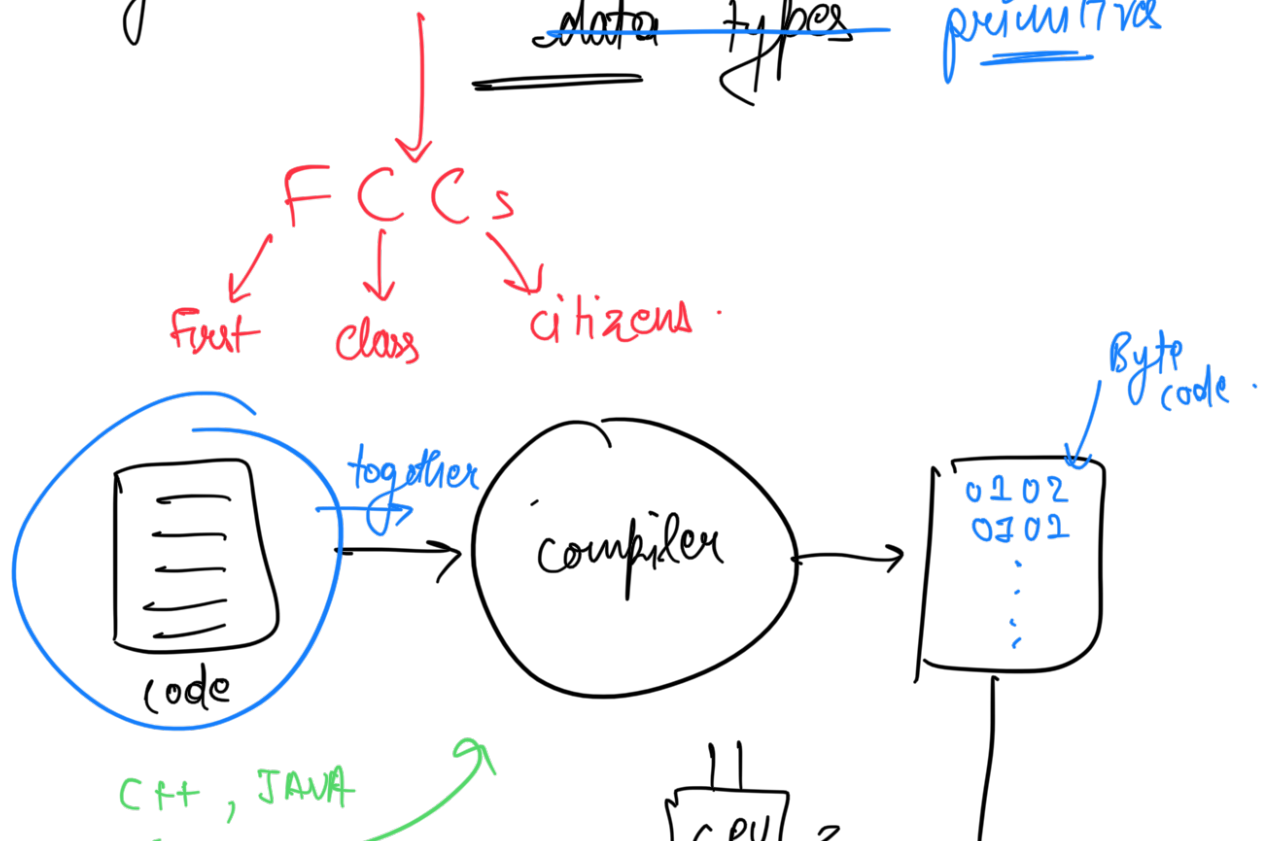 data types primitives
F C C s
First class citizens.
Byte code.
together
0 1 0 2
0 1 0 1
compiler
code
C++, JAVA
CPU